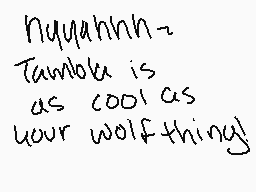 hyyahhh~
Tambla is
as cool as
your wolf thing!